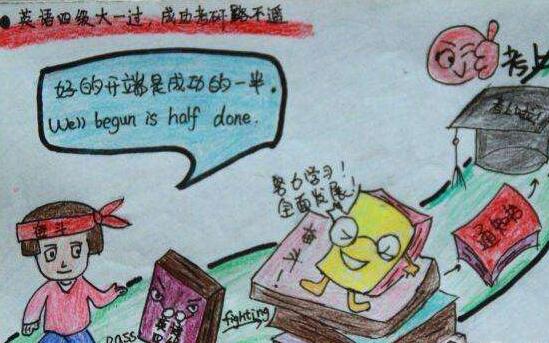 英语四级大一过,成功考研路不遥
好的开端是成功的一半.
Well begun is half done.
考上
努力学习!
全面发展!
奋斗
通知书
pass
fighting